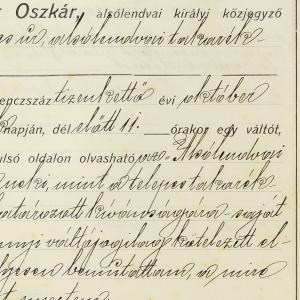 r Oszkár, alsólendvai királyi közjegyző
es úr, alsólendvai takarék-
enczszáz tizenkettő évi október
napján, dél előtt 11. órakor egy váltót,
ulsó oldalon olvasható az Alsólendvai
neki, mint a telepes takarék-
atározott kívánságára saját
nnyi váltójogilag kötelezett el-
lyesen bemutattam, a mire